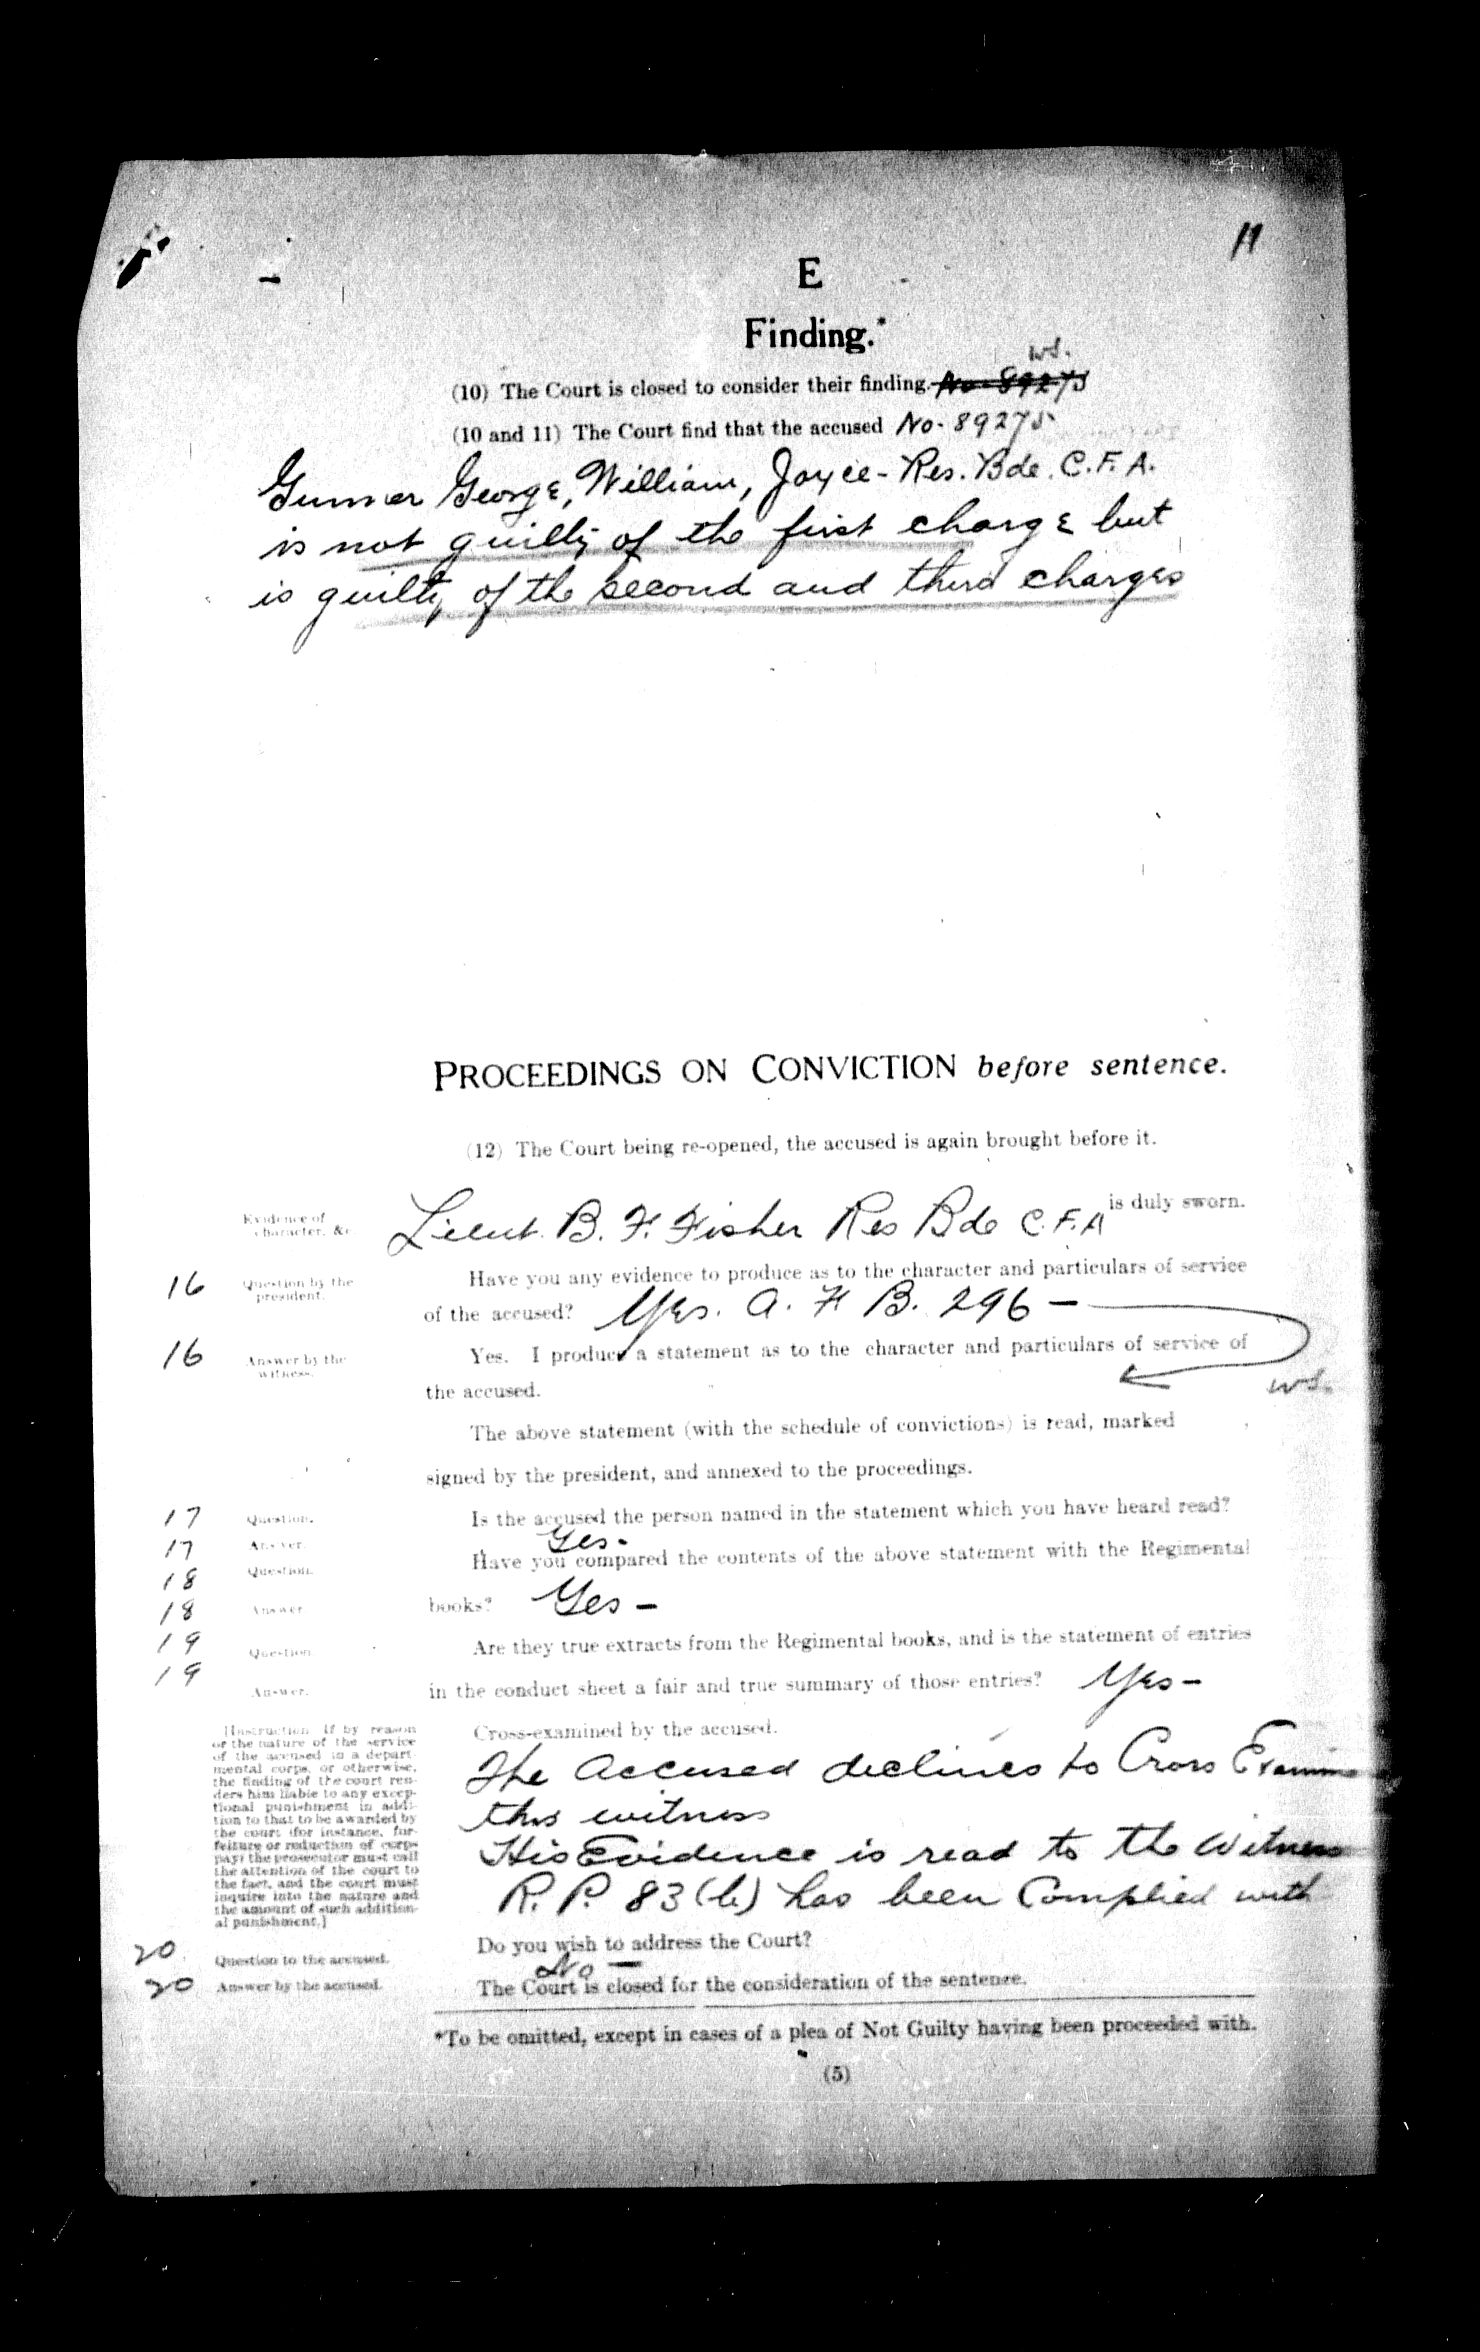 11
E
Finding.*
W.S.
(10) The Court is closed to consider their finding. No 89275
(10 and 11) The Court find that the accused No. 89275
Gunner George, William, Joyce - Res. Bde. C.F.A.
is not guilty of the first charge but
is guilty of the second and third charges
PROCEEDINGS ON CONVICTION before sentence.
(12) The Court being re-opened, the accused is again brought before it.
Evidence of character, &c.
Lieut. B. F. Fisher Res Bde C.F.A is duly sworn.
16 Question by the president. Have you any evidence to produce as to the character and particulars of service
of the accused? Yes. A. F B. 296 —
16 Answer by the witness. Yes. I produce a statement as to the character and particulars of service of
the accused. W.S.
The above statement (with the schedule of convictions) is read, marked
signed by the president, and annexed to the proceedings.
17 Question. Is the accused the person named in the statement which you have heard read?
17 Answer. Yes.
18 Question. Have you compared the contents of the above statement with the Regimental
18 Answer books? Yes —
19 Question. Are they true extracts from the Regimental books, and is the statement of entries
19 Answer. in the conduct sheet a fair and true summary of those entries? Yes —
[Instruction. If by reason
of the nature of the service
of the accused in a depart-
mental corps, or otherwise,
the finding of the court ren-
ders him liable to any excep-
tional punishment in addi-
tion to that to be awarded by
the court (for instance, for-
feiture or reduction of corps
pay) the prosecutor must call
the attention of the court to
the fact, and the court must
inquire into the nature and
the amount of such addition-
al punishment.]
Cross-examined by the accused.
The Accused declines to Cross Examine
this witness
His Evidence is read to the Witness
R. P. 83 (b) has been Complied with
20 Question to the accused. Do you wish to address the Court?
20 Answer by the accused. No —
The Court is closed for the consideration of the sentence.
*To be omitted, except in cases of a plea of Not Guilty having been proceeded with.
(5)